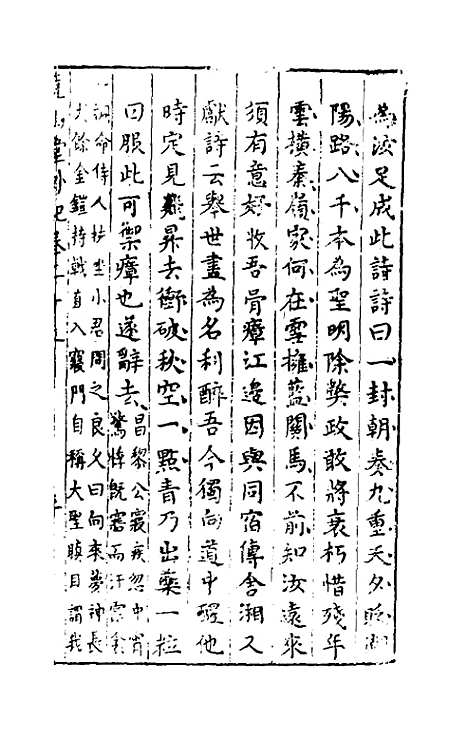 為汝足成此詩詩曰一封朝奏九重天夕貶潮
陽路八千本為聖明除獘政敢將衰朽惜殘年
雲橫秦嶺家何在雪擁藍關馬不前知汝遠來
須有意好收吾骨瘴江邊因與同宿傳舍湘又
獻詩云舉世盡為名利醉吾今獨向道中醒他
時定見飛昇去衝破秋空一點青乃出藥一粒
曰服此可禦瘴也遂辭去昌黎公寢疾忽中宵
驚悸既寤而汗
命侍人扶坐小君問之良久曰向來夢神長
丈餘金鎧持戟直入寢門自稱大聖瞋目謂我